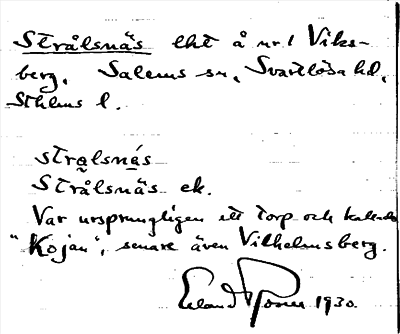 Strålsnäs lht å nr 1 Viks-
berg, Salems sn, Svartlösa hd,
Sthlms l.
strålsnẹ́s
Strålsnäs ek.
Var ursprungligen ett torp och kallades
"Kojan", senare även Vilhelmsberg.
Erland 1930.